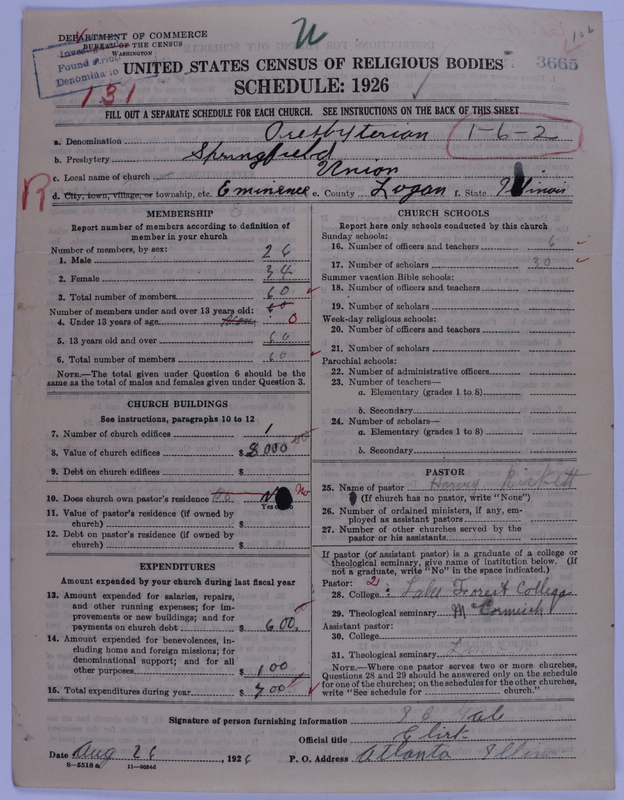 DEPARTMENT OF COMMERCE
BUREAU OF THE CENSUS
WASHINGTON
Found
Denomina
106
UNITED STATES CENSUS OF RELIGIOUS BODIES
3665
SCHEDULE: 1926
131
FILL OUT A SEPARATE SCHEDULE FOR EACH CHURCH. SEE INSTRUCTIONS ON THE BACK OF THIS SHEET
a. Denomination Presbyterian 1-6-2
b. Presbytery Springfield
c. Local name of church Union
R
d. City, town, village, or township, etc. Eminence e. County Logan f. State Illinois
MEMBERSHIP
Report number of members according to definition of member in your church
Number of members, by sex:
1. Male 26
2. Female 34
3. Total number of members 60
Number of members under and over 13 years old: 60
4. Under 13 years of age 0
5. 13 years old and over 60
6. Total number of members 60
NOTE.—The total given under Question 6 should be the same as the total of males and females given under Question 3.
CHURCH BUILDINGS
See instructions, paragraphs 10 to 12
7. Number of church edifices 1
8. Value of church edifices $ 8000
9. Debt on church edifices $
10. Does church own pastor's residence No No
Yes or No
11. Value of pastor's residence (if owned by church) $
12. Debt on pastor's residence (if owned by church) $
EXPENDITURES
Amount expended by your church during last fiscal year
13. Amount expended for salaries, repairs, and other running expenses; for improvements or new buildings; and for payments on church debt $ 600
14. Amount expended for benevolences, including home and foreign missions; for denominational support; and for all other purposes $ 100
15. Total expenditures during year $ 700
CHURCH SCHOOLS
Report here only schools conducted by this church
Sunday schools:
16. Number of officers and teachers 6
17. Number of scholars 30
Summer vacation Bible schools:
18. Number of officers and teachers
19. Number of scholars
Week-day religious schools:
20. Number of officers and teachers
21. Number of scholars
Parochial schools:
22. Number of administrative officers
23. Number of teachers—
a. Elementary (grades 1 to 8)
b. Secondary
24. Number of scholars—
a. Elementary (grades 1 to 8)
b. Secondary
PASTOR
25. Name of pastor Henry
(If church has no pastor, write "None")
26. Number of ordained ministers, if any, employed as assistant pastors
27. Number of other churches served by the pastor or his assistants
If pastor (or assistant pastor) is a graduate of a college or theological seminary, give name of institution below. (If not a graduate, write "No" in the space indicated.)
Pastor: 2
28. College: Lake Forest College
29. Theological seminary McCormick
Assistant pastor:
30. College
31. Theological seminary
NOTE.—Where one pastor serves two or more churches, Questions 28 and 29 should be answered only on the schedule for one of the churches; on the schedules for the other churches, write "See schedule for church."
Signature of person furnishing information
Official title Clerk
Date Aug 26, 1926 P. O. Address Atlanta Illinois
8—5518a 11—9554d